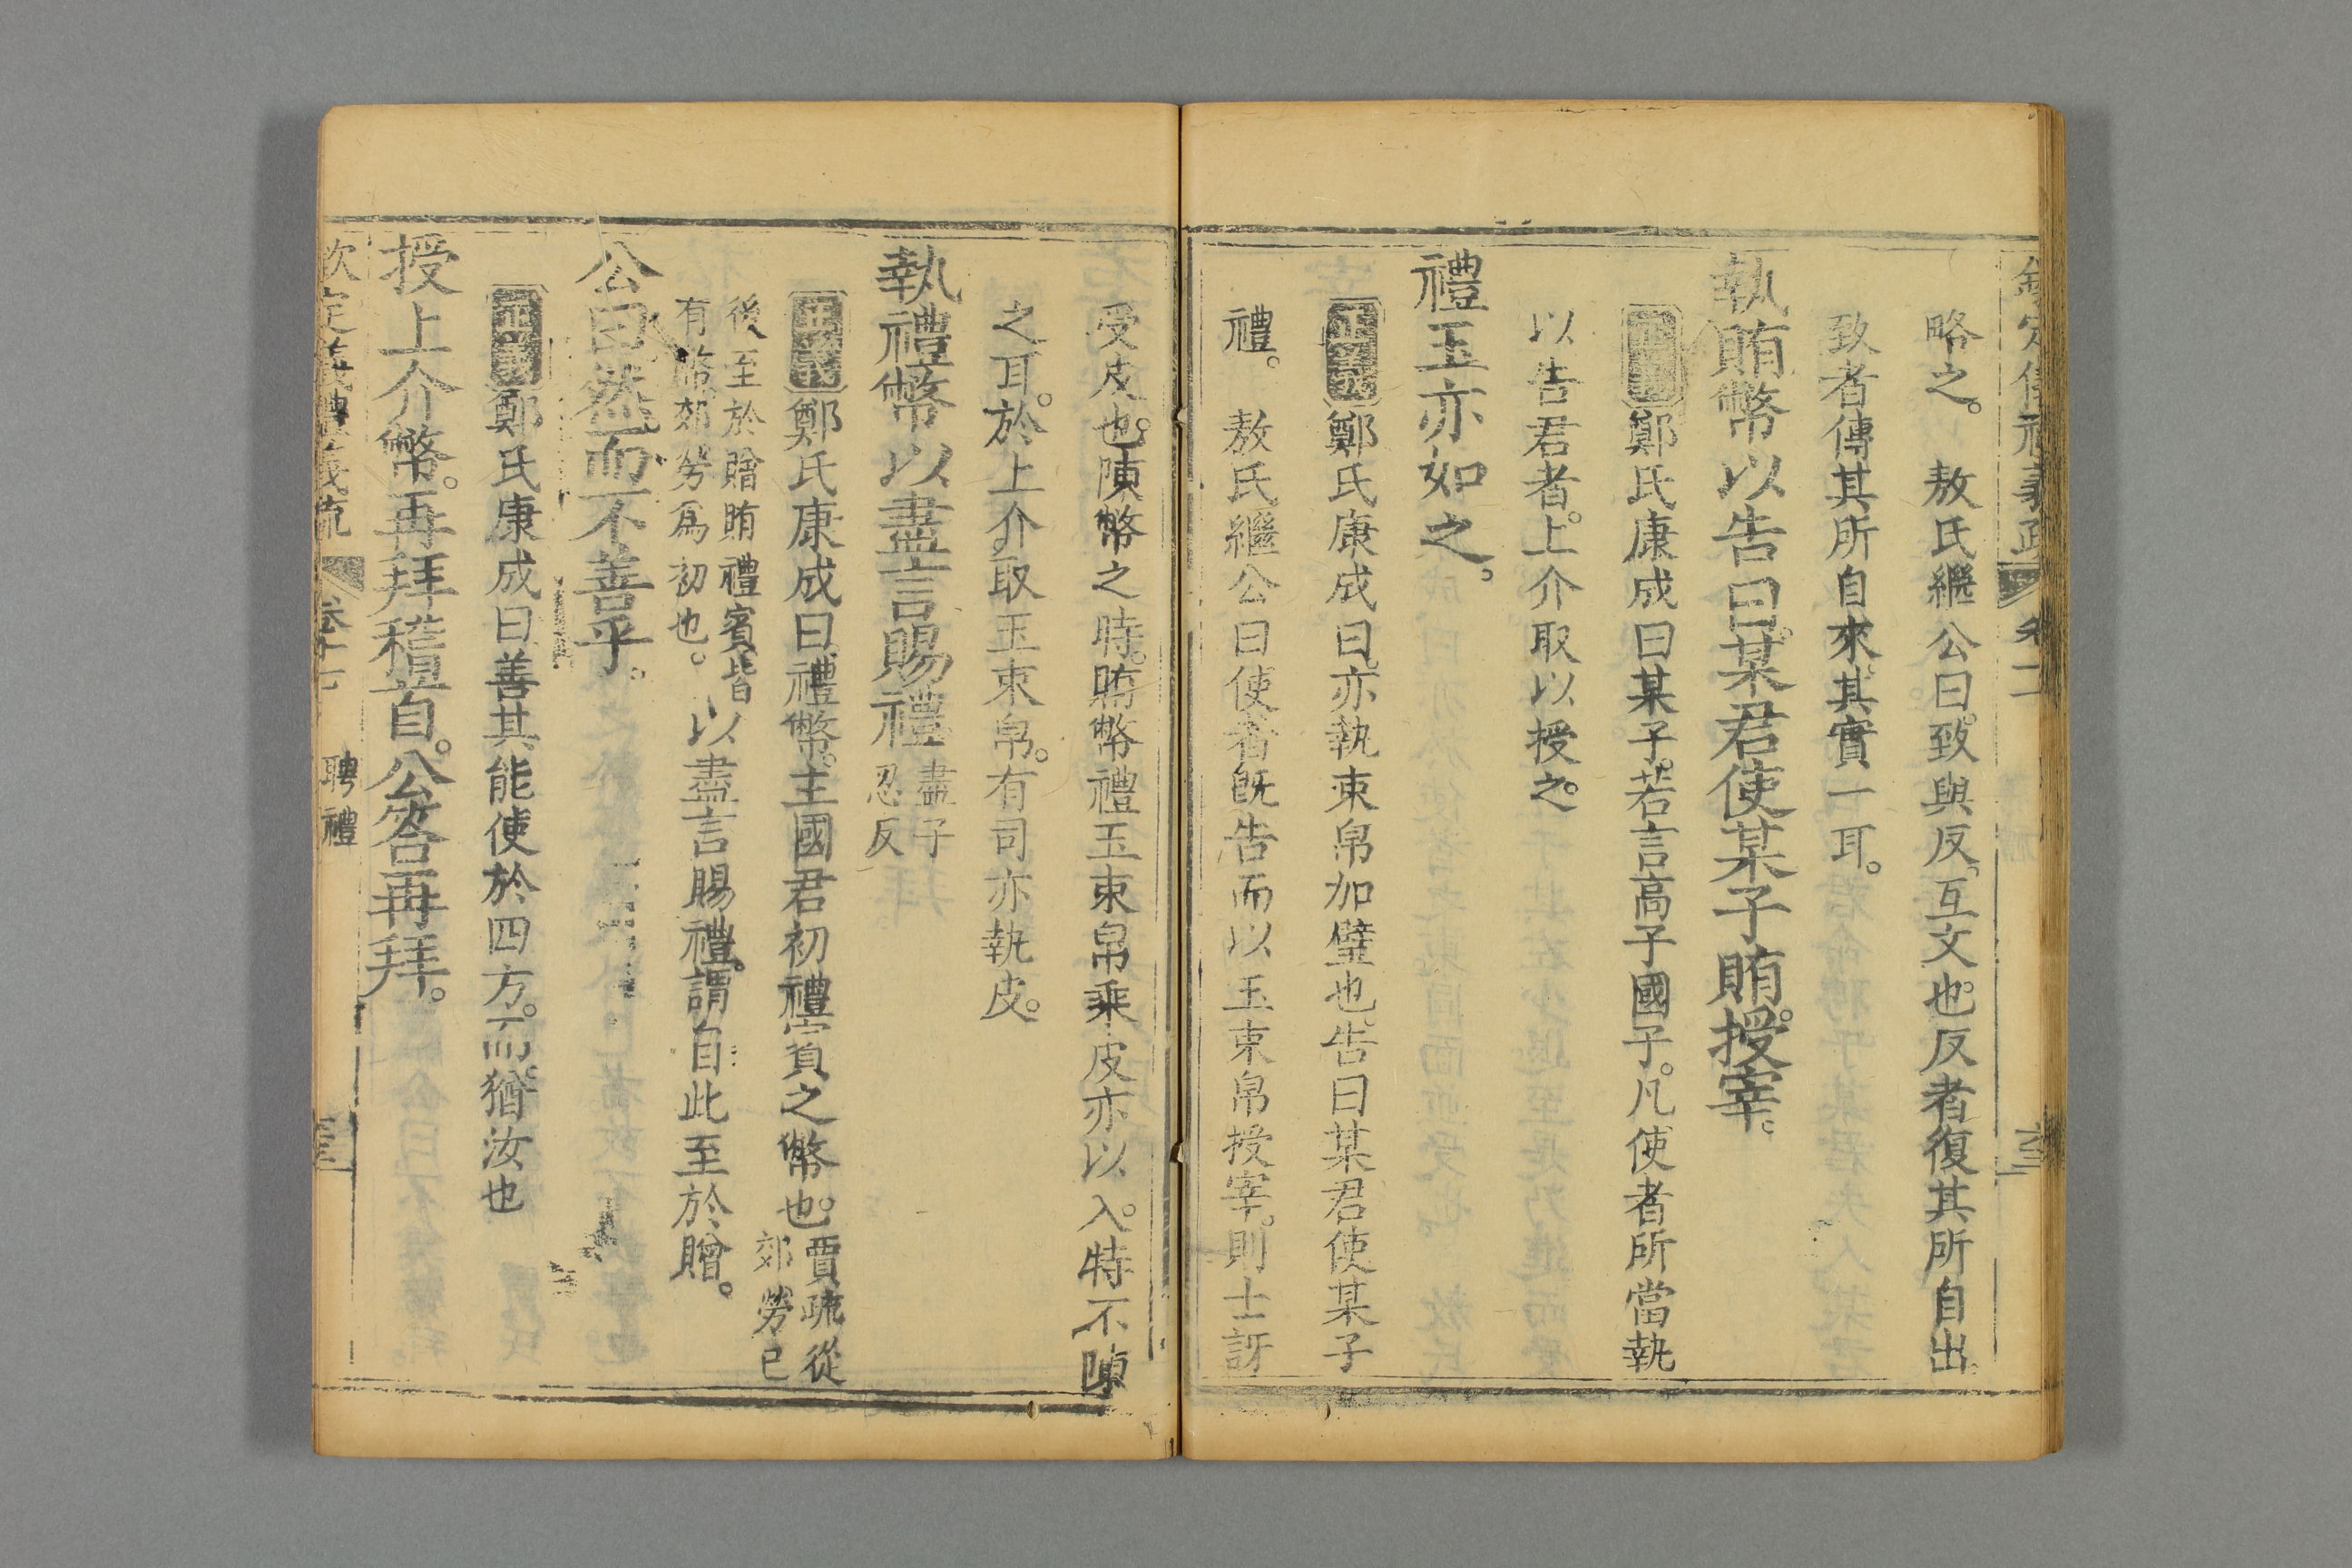 略之。敖氏繼公曰。致與反。互文也。反者復其所自出
致者傳其所自來。其實一耳。
執賄幣以告曰。某君使某子賄。授宰。
正義鄭氏康成曰某子。若言高子國子。凡使者所當執
以告君者。上介取以授之。
禮玉亦如之。
正義鄭氏康成曰。亦執束帛加璧也。告曰某君使某子
禮。敖氏繼公曰使者旣告而以玉束帛授宰。則士訝
受皮也。陳幣之時。賄幣禮玉束帛乘皮亦以入。特不陳
之耳。於上介取玉束帛。有司亦執皮。
執禮幣以盡言賜禮盡子忍反
正義鄭氏康成曰。禮幣。主國君初禮賓之幣也。賈疏從郊勞已
後至於贈賄禮賓皆有幣郊勞爲初也。以盡言賜禮。謂自此至於贈。
公曰然而不善乎。
正義鄭氏康成曰善其能使於四方。而猶汝也
授上介幣。再拜稽首。公答再拜。
欽定儀禮義疏 卷十七 聘禮